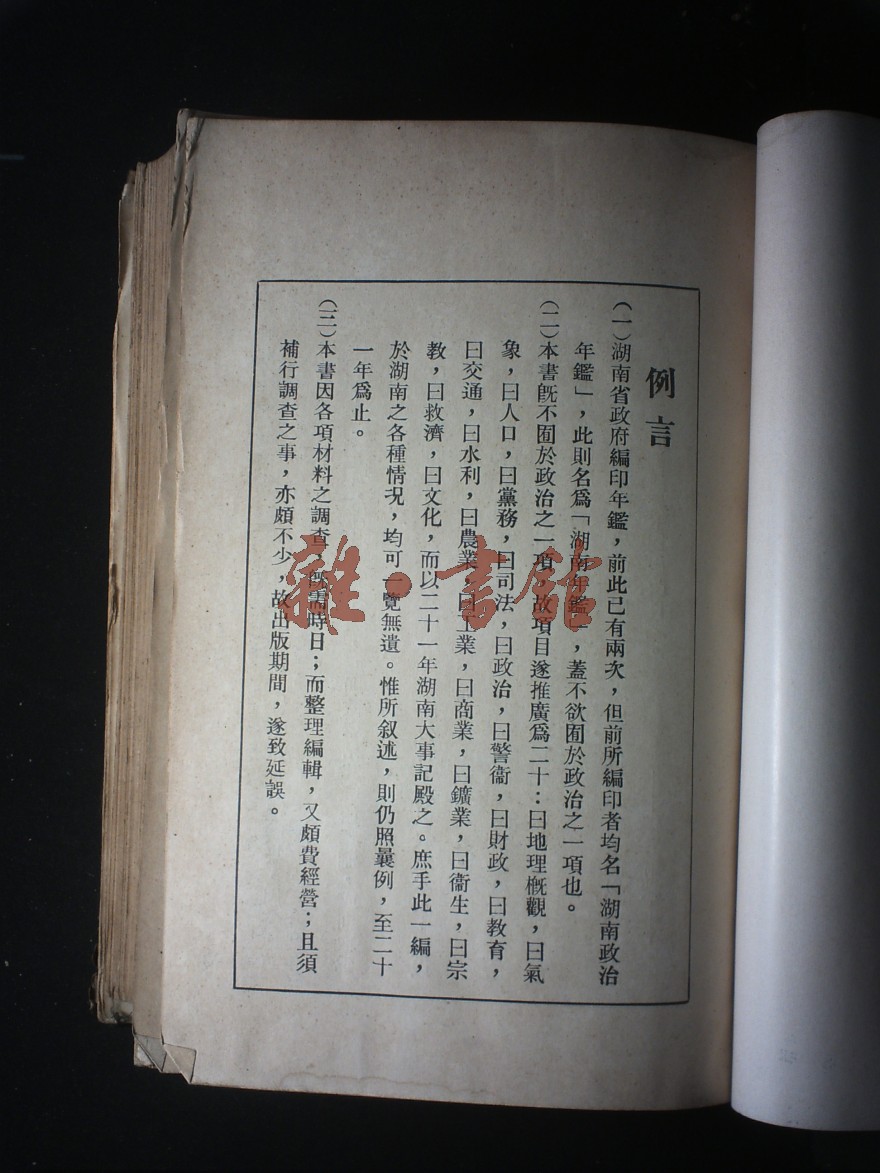 例言
（一）湖南省政府編印年鑑，前此已有兩次，但前所編印者均名「湖南政治
年鑑」，此則名爲「湖南年鑑」，蓋不欲囿於政治之一項也。
（二）本書旣不囿於政治之一項，故項目遂推廣爲二十：曰地理槪觀，曰氣
象，曰人口，曰黨務，曰司法，曰政治，曰警衞，曰財政，曰教育，
曰交通，曰水利，曰農業，曰工業，曰商業，曰鑛業，曰衞生，曰宗
教，曰救濟，曰文化，而以二十一年湖南大事記殿之。庶手此一編，
於湖南之各種情况，均可一覽無遺。惟所叙述，則仍照曩例，至二十
一年爲止。
（三）本書因各項材料之調查，旣需時日；而整理編輯，又頗費經營；且須
補行調查之事，亦頗不少，故出版期間，遂致延誤。
雜·書館